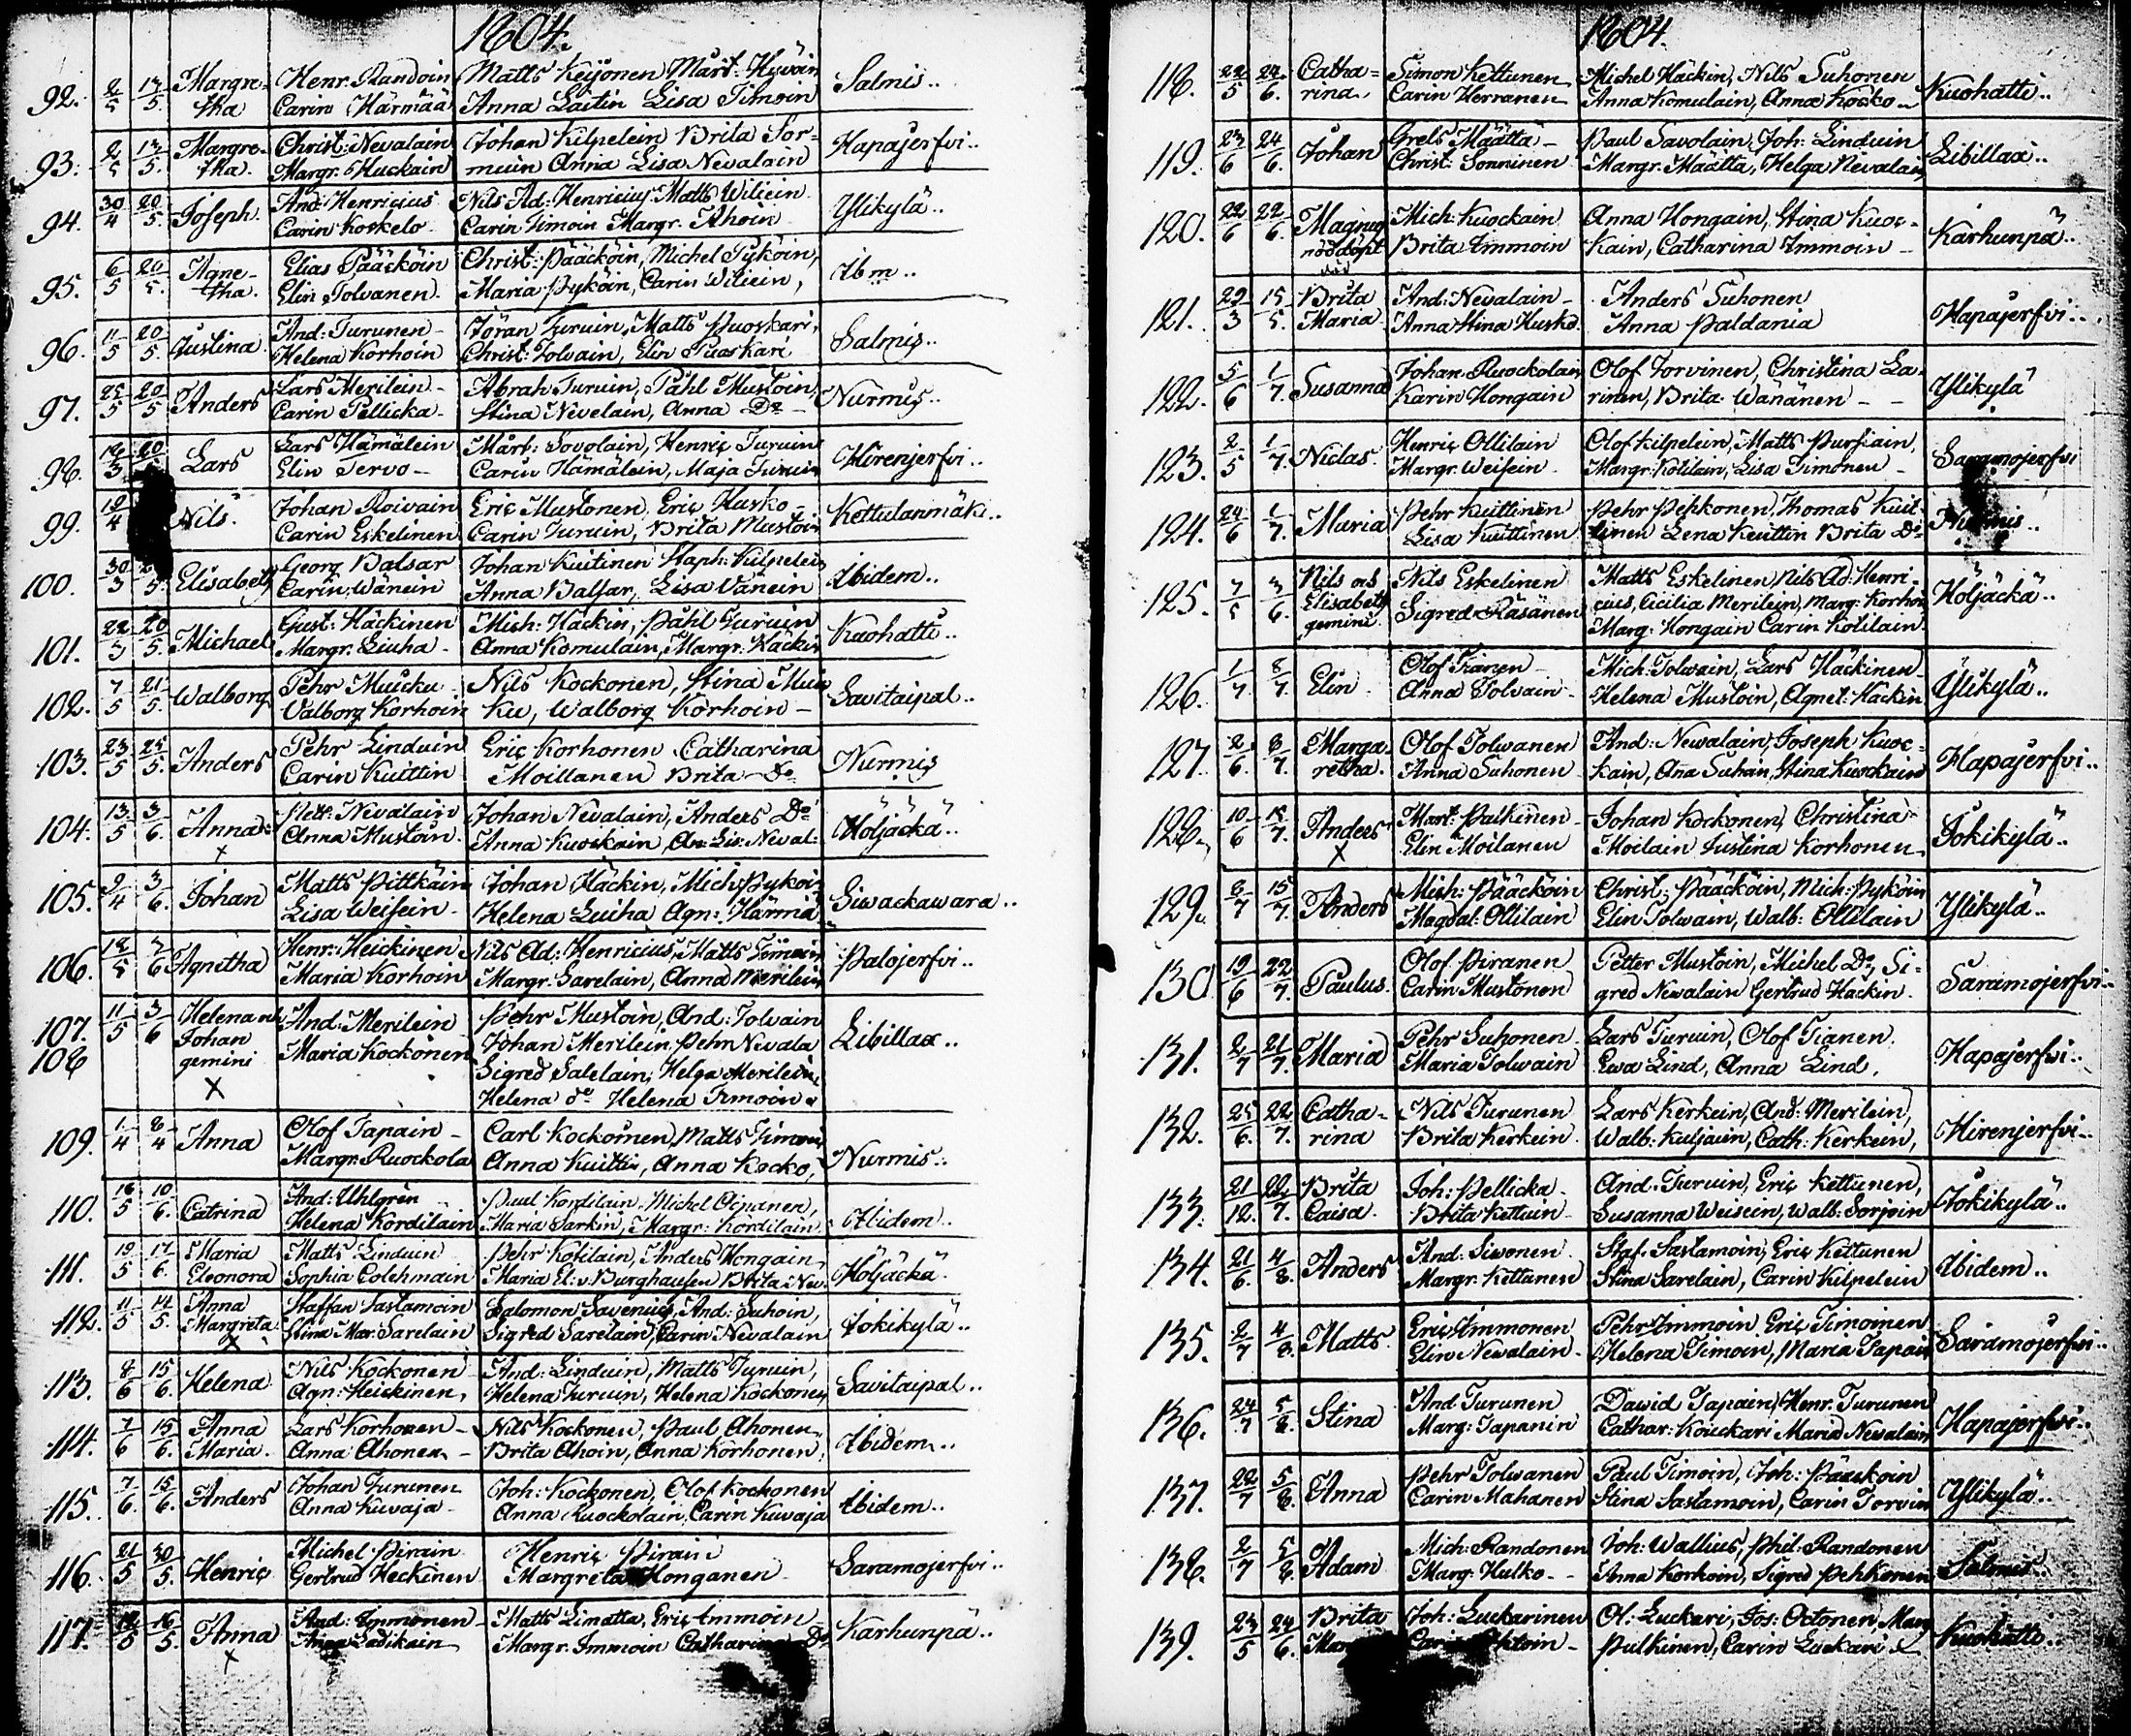 1804.
92. 2/5 13/5. Margre- Henr. Randoin Matts Keijonen Mårt: Hyväin Salmis..
tha Carin Härmää Anna Laitin Lisa Timoin
93. 2/5 13/5. Margre- Christ: Nevalain Johan Kilpelein Brita Sor= Hapajerfvi..
tha. Margr. Huckain muin Anna Lisa Nevalain
94. 30/4 20/5. Joseph. And: Henricius Nils Ad: Henricius Matts Wiliein Ylikylä..
Carin Koskelo Carin Timoin Margr. Ahoin
95. 6/5 20/5. Agne- Elias Pääcköin Christ: Pääcköin, Michel Pyköin, Ibm..
tha. Elin Tolvanen. Maria Pyköin, Carin Wiliein,
96. 11/5 20/5 Justina And: Turunen- Jöran Turuin, Matts Puoskari, Salmis..
Helena Korhoin Christ: Tolvain, Elin Puaskari
97. 25/5 20/5 Anders Lars Merilein- Abrah Turuin, Påhl Mustoin, Nurmis..
Carin Pellicka- Stina Nevelain, Anna Do-
98. Lars Lars Hämälein Mårt: Sovolain, Henric Turuin Hirenjerfvi..
Elin Tervo- Carin Hämälein, Maja Turuin
99. Nils. Johan Roivain Eric Mustonen Eric Husko- Kettulanmäki..
Carin Eskelinen Carin Turuin, Brita Mustoin
100. 30/3 Elisabeth Georg Balsar Johan Kuitinen Staph: Kilpelein Ibidem..
Carin Wänein Anna Balsar, Lisa Vänein
101. 22/3 20/5. Michael Gust: Häckinen Mich: Häckin, Påhl Turuin Kuohatti..
Margr. Liuha- Anna Komulain, Margr. Häckin
102. 7/5 21/5. Walborg Pehr Muicku Nils Kockonen, Stina Mui Savitaipal..
Valborg Korhoin ku, Walborg Korhoin-
103. 23/5 25/5. Anders Pehr Linduin Eric Korhonen Catharina Nurmis
Carin Kuittin Moillanen Brita Do
104. 13/5 3/6. Anna: Pett: Nevalain Johan Nevalain, Anders Do Höljäckä..
x Anna Mustoin. Anna Kuockain, An: Lis: Neval:
105. 9/4 3/6. Johan Matts Pittkäin Johan Häckin, Mich: Pyköin Siwackawara..
Lisa Weisein- Helena Luiha Agn: Hämia
106. 12/5 3/6 Agnetha Henr: Heickinen Nils Ad: Henricius, Matts Timoin Palojerfvi..
Maria Korhoin Margr. Sarelain, Anna Merilein
107. 11/5 3/6 Helena och And: Merilein Pehr Mustoin, And: Tolvain Libillax..
108 Johan Maria Kockonen Johan Merilein Pehr Nevala
gemini Sigred Salelain, Helga Merilein,
X Helena do Helena Timoin
109. 1/4 8/4 Anna Olof Tapain- Carl Kockoinen, Matts Timoni Nurmis..
Margr. Ruockola Anna Kuittin, Anna Kocko,
110. 16/5 10/6. Catrina And: Uhlgrén Paul Kordilain, Michel Oipanen, Ibidem..
Helena Kordilain Maria Sarkin, Margr: Kordilain
111. 19/5 17/6. Maria Matts Linduin Pehr Kotilain, Anders Hongain, Höljäckä
Eleonora Sophia Colehmain Maria El: v. Burghausen Brita Nev.
112. 11/5 14/5. Anna Staffan Sastamoin Salomon Savenius, And: Suhoin, Jokikylä..
Margreta Stina Mar: Sarelain Sigred Sarelain, Carin Nevalain
x
113. 8/6 15/6. Helena Nils Kockonen And: Linduin, Matts Turuin, Savitaipal..
Agn: Heickinen, Helena Turuin, Helena Kockonen
114. 7/6 15/6. Anna Lars Korhonen- Nils Kockonen, Paul Ahonen- Ibidem..
Maria. Anna Ahonen- Brita Ahoin, Anna Korhonen,
115. 7/6. 15/6. Anders Johan Turunen Joh: Kockonen, Olof Kockonen Ibidem..
Anna Kuvaja- Anna Ruockolain, Carin Kuvaja
116. 21/5 30/5. Henric Michel Pirain Henric Pirain Saramojerfvi..
Gertrud Heckinen Margreta Honganen-
117. 12/5 16/5. Anna And: Immonen- Matts Limatta, Eric Immoin- Karhunpä..
x Anna Ladikain Margr. Immoin Catharina Do
1804.
118. 22/5 24/6. Catha= Simon Kettunen Michel Häckin, Nils Suhonen Kuohatti..
rina, Carin Herranen Anna Komulain, Anna Kocko-
119. 23/6 24/6. Johan Grels Määttä- Paul Savolain, Joh: Linduin Libillax..
Christ: Sonninen Margr. Määttä, Helga Nevalain
120. 22/6 22/6. Magnus Mich: Kuockain Anna Hongain, Stina Kuoc- Karhunpä..
nöddöpt Brita Immoin kain, Catharina Immoin-
död
121. 29/3 15/5. Brita And: Nevalain- Anders Suhonen Hapajerfvi..
Maria Anna Stina Husko Anna Paldania
122. 5/6 1/7. Susanna Johan Ruockolain Olof Torvinen, Christina La- Ylikylä
Karin Hongain rinen, Brita Wänänen--
123. 2/5 1/7. Niclas. Henric Ollilain Olof Kilpelein, Matts Pursiain, Saramojerfvi
Margr. Weisein- Margr. Kotilain, Lisa Timonen-
124. 24/6 1/7. Maria Pehr Kuittinen Pehr Pehkonen, Thomas Kuit- Nurmis..
Lisa Kuittinen tinen Lena Kuittin Brita Do
125. 7/5 3/6. Nils och Nils Eskelinen Matts Eskelinen, Nils Ad: Henri- Höljäckä..
Elisabeth Sigred Räsänen cius, Cicilia Merilein, Marg: Korhoi
gemini Marg: Hongain Carin Kotilain
126. 1/7 8/7. Elin. Olof Tianen- Mich: Tolvain, Lars Häckinen- Ylikylä..
Anna Tolvain- Helena Mustoin, Agnet: Häckin
127. 2/6. 8/7. Marga- Olof Tolwanen And: Newalain, Joseph Kuoc- Hapajerfvi..
retha. Anna Suhonen kain, Ana Suhän, Stina Kuockain
128. 10/6 15/7. Anders Mart: Pulkinen- Johan Kockonen, Christina- Jokikylä..
X Elin Moilanen Moilain Justina Korhonen-
129. 8/7 15/7. Anders Mich: Pääcköin Christ: Pääcköin, Mich: Pyköin Ylikylä..
Magdal: Ollilain Elin Tolwain, Walb: Ollilain
130 19/6 22/7. Paulus. Olof Piranen Petter Mustoin, Michel Do, Si- Saramojerfvi..
Carin Mustonen gred Newalain Gertrud Hackin.
131. 2/7 21/7. Maria Pehr Suhonen. Lars Turuin, Olof Tianen. Hapajerfvi..
Maria Tolwain Ewa Lind, Anna Lind.
132. 25/6. 22/7. Catha- Nils Turunen Lars Kerkein, And: Merilein, Hirenjerfvi..
rina Brita Kerkein Walb. Kuljauin, Cath: Kerkein,
133. 21/12. 22/7. Brita Joh: Pellicka- And: Turuin, Eric Kettunen, Jokikylä..
Caisa. Brita Kettuin- Susanna Weisein, Walb: Sorjoin
134. 21/6. 4/8. Anders And: Siwonen. Staf: Sastamoin, Eric Kettunen Ibidem..
Margr. Kettunen Stina Sarelain, Carin Kilpelein
135. 2/7 4/8. Matts Eric Immonen Pehr Immoin Eric Timoinen Saramojerfvi..
Elin Newalain- Helena Timoin, Maria Tapain
136. 24/7 5/8. Stina And Turunen Dawid Tapain, Henr. Turunen Hapajerfvi..
Marg: Tapanin Cathar: Kouckari Maria Newalain
137. 22/7 5/8. Anna Pehr Tolwanen Paul Timoin, Joh: Pääckoin Ylikylä..
Carin Mahanen Stina Sastamoin, Carin Torvin
138. 2/7 5/8. Adam Mich: Randonen Joh: Wallius, Phil: Randonen Salmis..
Marg: Hulko-- Anna Korhoin, Sigred Pehkonen
139. 23/5 24/6. Brita Joh: Luckarinen Ol: Luckari, Jos: Octonen, Marg Kuohatti..
Carin Pulkinen, Carin Luckari